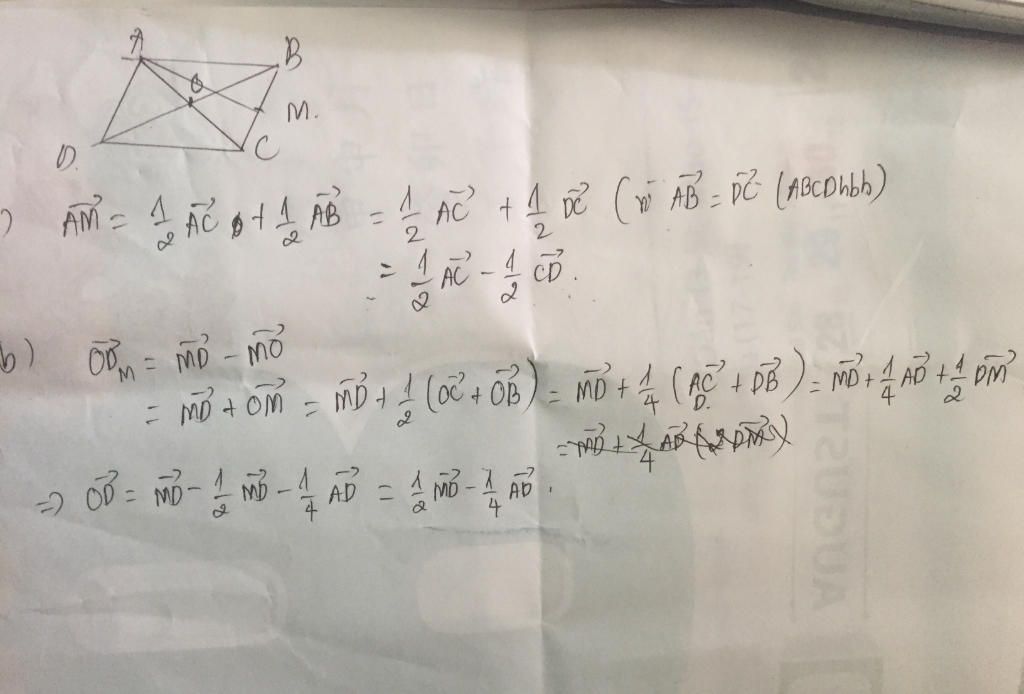 A
B
O
M.
D.
C
) AM⃗ = 1/2 AC⃗ + 1/2 AB⃗ = 1/2 AC⃗ + 1/2 DC⃗ (vì AB⃗ = DC⃗ (ABCDhbh)
= 1/2 AC⃗ - 1/2 CD⃗.
b) OD⃗ = MD⃗ - MO⃗
= MD⃗ + OM⃗ = MD⃗ + 1/2 (OC⃗ + OB⃗) = MD⃗ + 1/4 (AC⃗ + DB⃗) = MD⃗ + 1/4 AD⃗ + 1/2 DM⃗
=> OD⃗ = MD⃗ - 1/2 MD⃗ - 1/4 AD⃗ = 1/2 MD⃗ - 1/4 AD⃗.
AUGUST